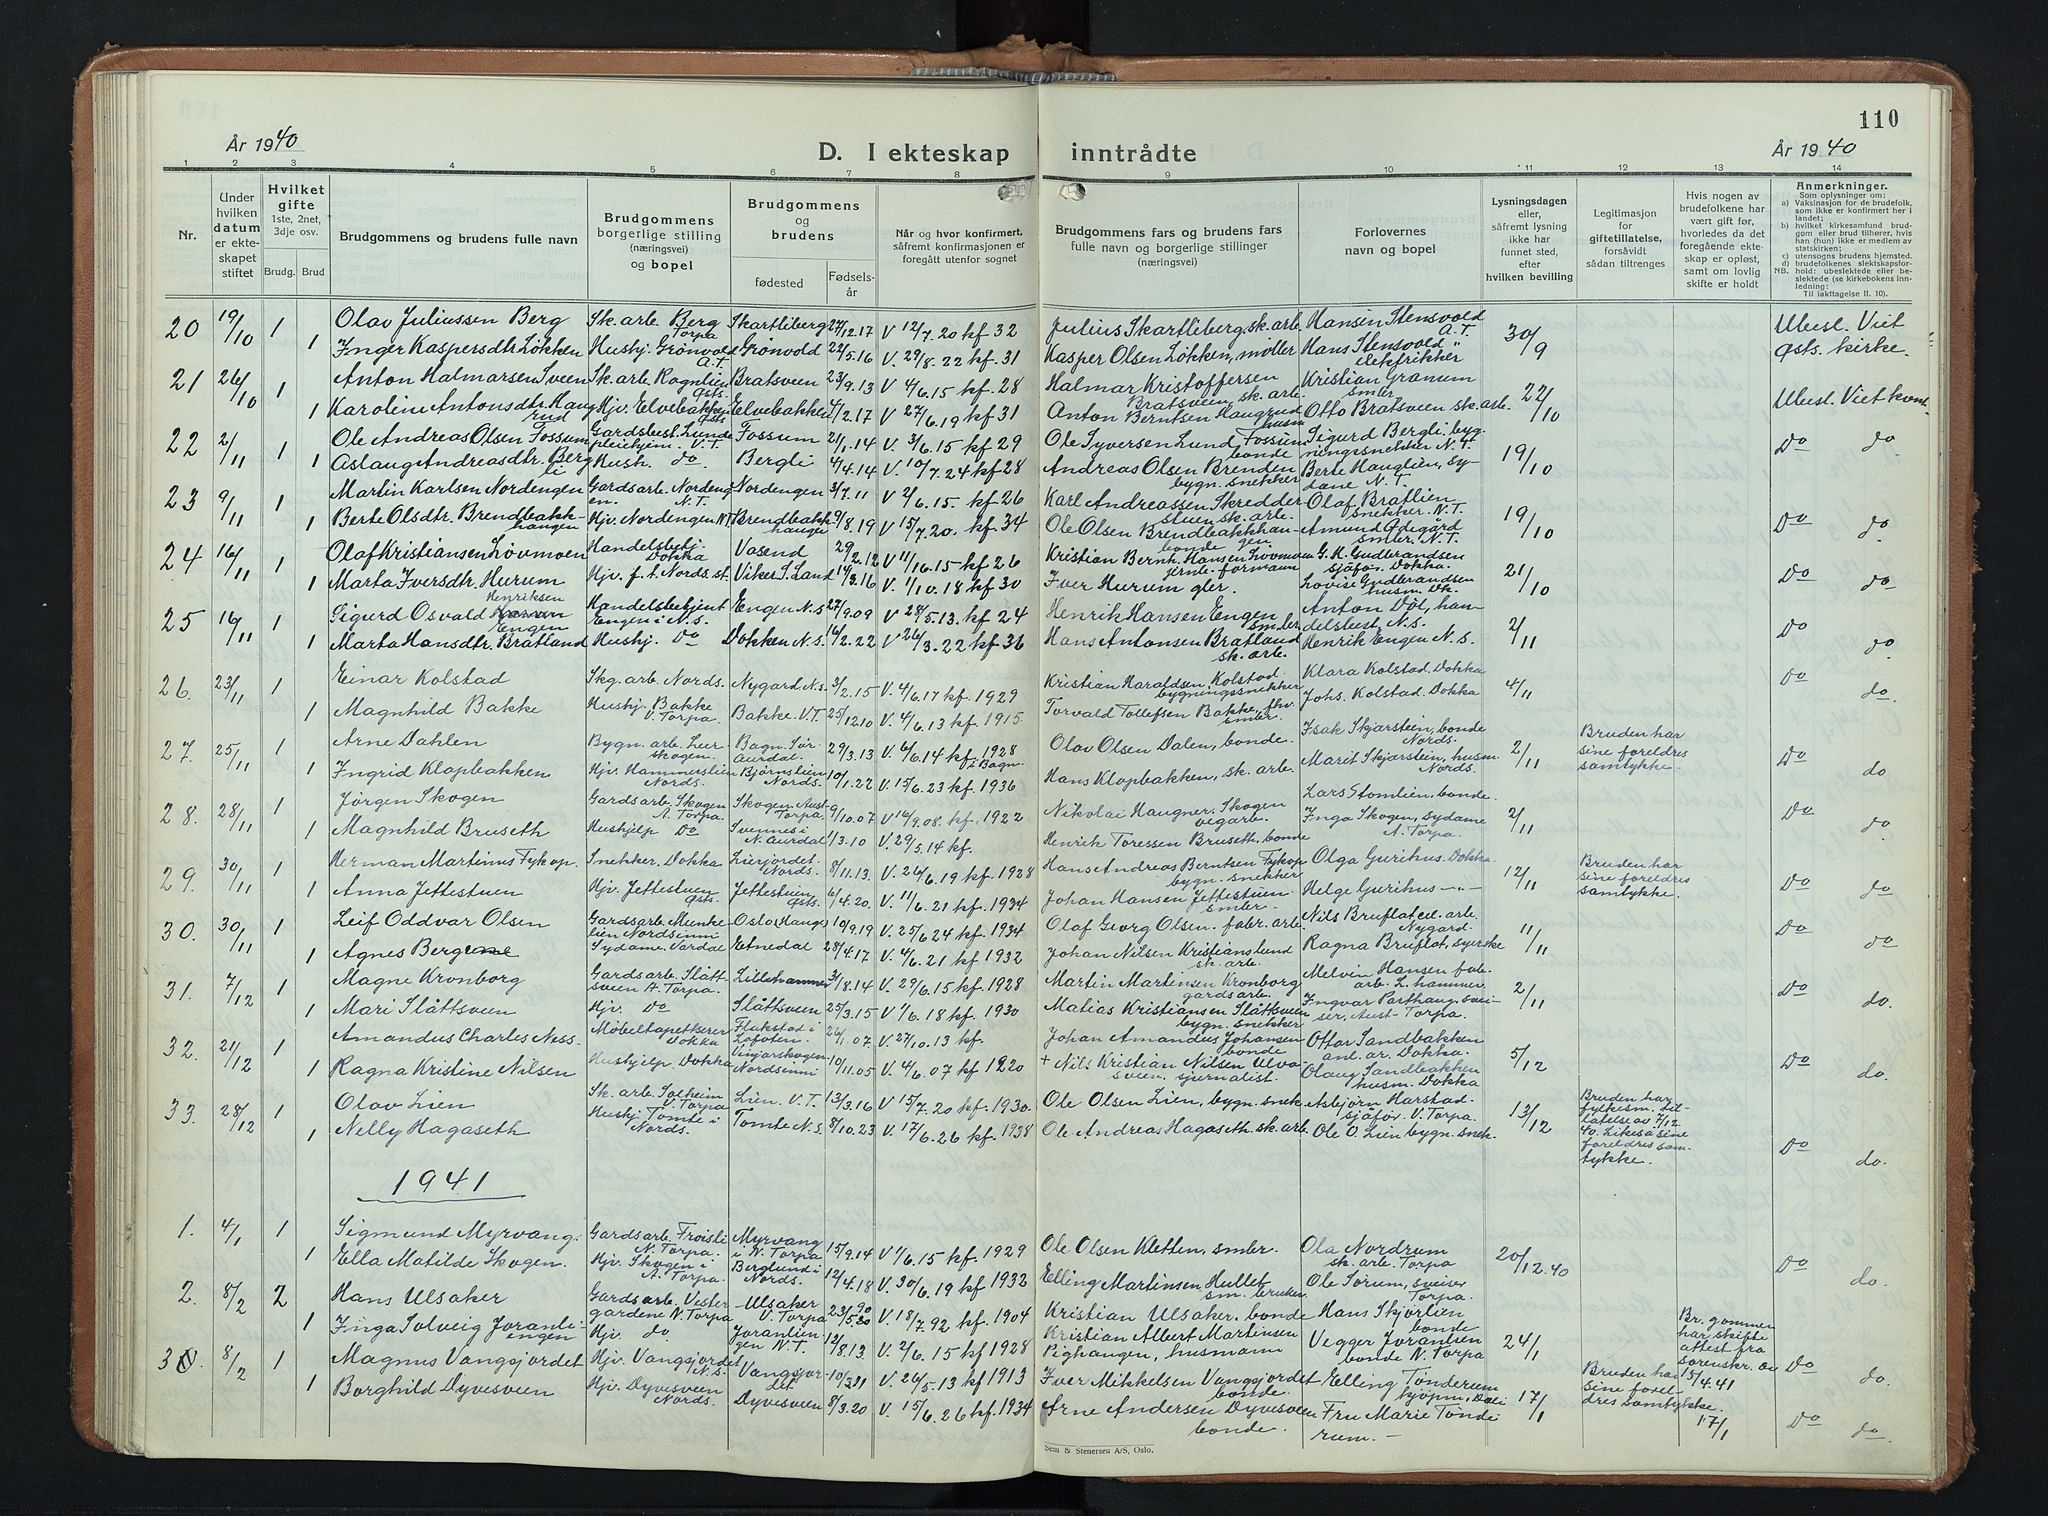 110
År 1940
D. I ekteskap inntrådte
År 1940
1 2 3 4 5 6 7 8 9 10 11 12 13 14
Nr.
Under hvilken datum er ekte-skapet stiftet
Hvilket gifte
1ste, 2net, 3dje osv.
Brudg. Brud
Brudgommens og brudens fulle navn
Brudgommens borgerlige stilling (næringsvei) og bopel
Brudgommens og brudens
fødested
Fødsels-år
Når og hvor konfirmert, såfremt konfirmasjonen er foregått utenfor sognet
Brudgommens fars og brudens fars fulle navn og borgerlige stillinger (næringsvei)
Forlovernes navn og bopel
Lysningsdagen eller, såfremt lysning ikke har funnet sted, efter hvilken bevilling
Legitimasjon for giftetillatelse, forsåvidt sådan tiltrenges
Hvis nogen av brudefolkene har vært gift før, hvorledes da det foregående ekte-skap er opløst, samt om lovlig skifte er holdt
Anmerkninger.
Som oplysninger om:
a) Vaksinasjon for de brudefolk, som ikke er konfirmert her i landet;
b) hvilket kirkesamfund brud-gom eller brud tilhører, hvis han (hun) ikke er medlem av statskirken;
c) utensogns brudens hjemsted.
d) brudefolkenes slektskapsfor-
NB. hold: ubeslektede eller be-slektede (se kirkebokens inn-ledning:
Til iakttagelse II. 10).
20 19/10 1 Olav Juliussen Berg Sk. arb. Berg Torpa Skartliberg 27/12.17 V 12/7.20 kf 32 Julius Skartliberg sk. arb. Hansin Stensvold A.T. 30/9 Ubesl. Viet
1 Inger Kaspersdtr. Løkken Hushj. Grønvold A.T. Grønvold 22/5.16 V. 29/8.22 kf. 31 Kasper Olsen Løkken, møller Hans Stensvold " elektrikker Østs. kirke.
21 26/10 1 Anton Halmarsen Sveen Sk. arb. Rognlien Østs. Bratsveen 23/9.13 V 4/6.15 kf - 28 Halmar Kristoffersen Bratsveen sk. arb. Kristian Granum smbr. 22/10 Ubesl. Viet kont.
1 Karoline Antonsdtr. Haugrud Hjv. Elvebakken Østs. Elvebakken 4/2.17 V 27/6.19 kf 31 Anton Berntsen Haugrud husm. Otto Bratsveen sk. arb.
22 2/11 1 Ole Andreas Olsen Fossum Gardsbest. Lunde pleiehjem. V.T. Fossum 21/1.14 V. 3/6.15 kf 29 Ole Syversen Lund Fossum bonde Sigurd Bergli byg-ningssnekker N.T. 19/10 Do do.
1 Aslaug Andreasdtr. Bergli Hush. do. Bergli 4/4.14 V 10/7.24 kf 28 Andreas Olsen Brenden bygn. snekker Berte Hauglien, sy-dame N.T.
23 9/11 1 Martin Karlsen Nordengen Gardsarb. Nordengen. N.T. Nordengen 3/7.11 V 2/6.15. kf 26 Karl Andreassen Skredderstuen sk. arb. Olaf Bratlien snekker. N.T. 19/10 Do do.
1 Berte Olsdtr. Brendbakkhaugen Hjv. Nordengen N.T. Brendbakkhaugen 9/8.19 V 15/7.20. kf. 34 Ole Olsen Brendbakkhaugen bonde Amund Ødegård smbr. N.T.
24 16/11 1 Olaf Kristiansen Lovmoen Handelsbetj. Dokka Vasend 29/2.12 V 11/16.15 kf 26 Kristian Bernh. Hansen Lovmoen jernb. formann G.H. Gudbrandsen sjåfør. Dokka. 21/10 Do do
1 Marta Iversdtr. Hurum Hjv. f.t. Nords. st. Viker S. Land 14/3.16 V. 1/10.18 kf 30 Iver Hurum gbr. Lovise Gudbrandsen husm. Dk.
25 16/11 1 Sigurd Osvald Henriksen Engen Handelsbetjent Engen i N.S. Engen N.S 27/9.09 V 28/5.13 kf 24 Henrik Hansen Engen smbr. Anton Døl, han-delsbest. N.S. 2/11 Do do.
1 Marta Hansdtr. Bratland Hushj. Do Dokken N.S. 14/2.22 V 26/3.22 kf 36 Hans Antonsen Bratland sk. arb. Henrik Engen N.S.
26. 23/11 1 Einar Kolstad Skg. arb. Nords. Nygard N.S. 3/2.15 V. 4/6.17 kf. 1929 Kristian Haraldsen Kolstad bygningssnekker Klara Kolstad. Dokka 4/11 Do do.
1 Magnhild Bakke Hushj. Bakke V. Torpa. Bakke. V.T. 25/12.10 V. 4/6.13 kf. 1915. Torvald Tollefsen Bakke, fhv. smbr. Johs. Kolstad. Dokka
27. 25/11 1 Arne Dahlen Bygn. arb. Leirskogen. Bagn. Sør Aurdal. 29/3.13 V. 6/6.14 kf. 1928 i Bagn. Olav Olsen Dalen, bonde. Isak Skjærstein, bonde Nords. 2/11 Bruden har sine foreldres samtykke. Do do
1 Ingrid Klopbakken Hjv. Hammerslien Nords. Bjørnslien Nords. 10/1.22 V. 15/6.23 kf. 1936 Hans Klopbakken, sk. arb. Marit Skjærstein, husm Nords.
28. 28/11 1 Jørgen Skogen Gardsarb. Skogen A. Torpa. Skogen Aust-Torpa. 9/10.07 V 16/9.08. kf. 1922 Nikolai Haugner. Skogen vegarb. Lars Stomlien, bonde. 2/11 Do do.
1 Magnhild Bruseth Hushjelp Do Svennes i N. Aurdal 1/3.10 V. 29/5.14 kf. Henrik Toressen Bruseth, bonde Inga Skogen, sydame A. Torpa
29. 30/11 1 Herman Martinus Fykop. Snekker. Dokka Lierjordet. Nords. 8/11.13. V. 26/6.19 kf. 1928 Hans Andreas Berntsen Fykop bygn. snekker Olga Gurihus. Dokka 12/11 Bruden har sine foreldres samtykke. Do do
1 Anna Jettestuen Hjv. Jettestuen Østs. Jettestuen Østs. 6/4.20. V. 11/6.21 kf. 1934 Johan Hansen Jettestuen. smbr. Helge Gurihus -"-
30. 30/11 1 Leif Oddvar Olsen Gardsarb. Munkelien Nordsinni Oslo (Hauge) 10/9.19 V. 25/6.24 kf. 1934 Olaf Georg Olsen. fabr. arb. Nils Bruflat cel. arb. Nygard. 11/11 Do do
1 Agnes Berg Sydame. Vardal Etnedal 28/4.17 V. 4/6.21 kf 1932 Johan Nilsen Kristianslund sk. arb. Ragna Bruflat, syerske
31. 7/12 1 Magne Kronborg Gardsarb. Slåttsveen A. Torpa. Lillehammer 31/8.14 V. 29/6.15 kf. 1928 Martin Martinsen Kronborg gardsarb. Melvin Hansen fab. arb. L. hammer 2/11 Do do.
1 Mari Slåttsveen Hjv. Do Slåttsveen 25/3.15 V 1/6.18 kf. 1930 Matias Kristiansen Slåttsveen bygn. snekker Ingvar Parthaug, svei-ser, Aust-Torpa.
32. 21/12 1 Amandus Charles Ness Møbeltapetserer Dokka Flakstad i Lofoten. 26/1.07. V. 27/10.13 kf. Johan Amandus Johansen bonde Ottar Sandbakken anl. ar. Dokka. 5/12 Do do.
1 Ragna Kristine Nilsen Hushjelp Dokka Vinjarskogen Nordsinni 10/11.05 V. 4/6.07 kf 1920 + Nils Kristian Nilsen Ulvasveen, sjurnalist. Olaug Sandbakken husm. Dokka
33. 28/12 1 Olav Lien Sk. arb. Solheim V. Torpa Lien. V.T. 13/3.16 V 15/7.20 kf. 1930. Ole Olsen Lien, bygn. snek. Asbjørn Harstad. sjåfør. V. Torpa. 13/12 Bruden har fylkesm. til-latelse av 7/12.40. Likeså sine foreldres sam-tykke. Do do.
1 Nelly Hagaseth Hushj Tomte i Nords. Tomte N.S. 8/10.23 V. 17/6.26 kf. 1938 Ole Andreas Hagaseth. sk. arb. Ole O. Lien bygn. snek.
1941
1. 4/1 1 Sigmund Myrvang. Gardsarb. Froisli N. Torpa. Myrvang i N. Torpa 15/9.14 V 1/6.15 kf. 1929 Ole Olsen Kletten, smbr. Ola Nordrum sk. arb. Torpa 20/12.40 Do do.
1 Ella Matilde Skogen. Hjv. Skogen i A. Torpa. Berglund i Nords. 12/4.18 V. 30/6.19 kf 1932 Elling Martinsen Hullet sm. bruker Ole Sørum, sveiser Torpa.
2. 8/2 2 Hans Ulsaker Gardsarb. Vestergardene N. Torpa Ulsaker V. Torpa 23/5.90 V. 18/7.92 kf. 1904 Kristian Ulsaker. bonde Hans Skjørlien bonde 24/1 Br. gommen har skifte attest fra sorenskr. av 15/4.41 Do do.
1 Inga Solveig Joranliengen Hjv. do. Joranliengen N.T. 12/8.13. V. 2/6.15 kf 1928 Kristian Albert Martinsen Pighaugen, husmann Vegger Joranlien bonde N. Torpa
3. 8/2 1 Magnus Vangsjordet Hjv. Vangsjordet N.S. Vangsjordet 10/3.21 V. 26/5.13 kf 1913 Iver Mikkelsen Vangsjordet bonde. Elling Tønderum kjøpm., Dok. 17/1 Bruden har sine forel-dres samtykke. 17/1 Do do.
1 Borghild Dyvesveen Hjv. Dyvesveen Nords. Dyvesveen 8/3.20 V. 15/6.26 kf. 1934 Arne Andersen Dyvesveen bonde. Fru Marie Tønderum.
Sem & Stenersen A/S, Oslo.